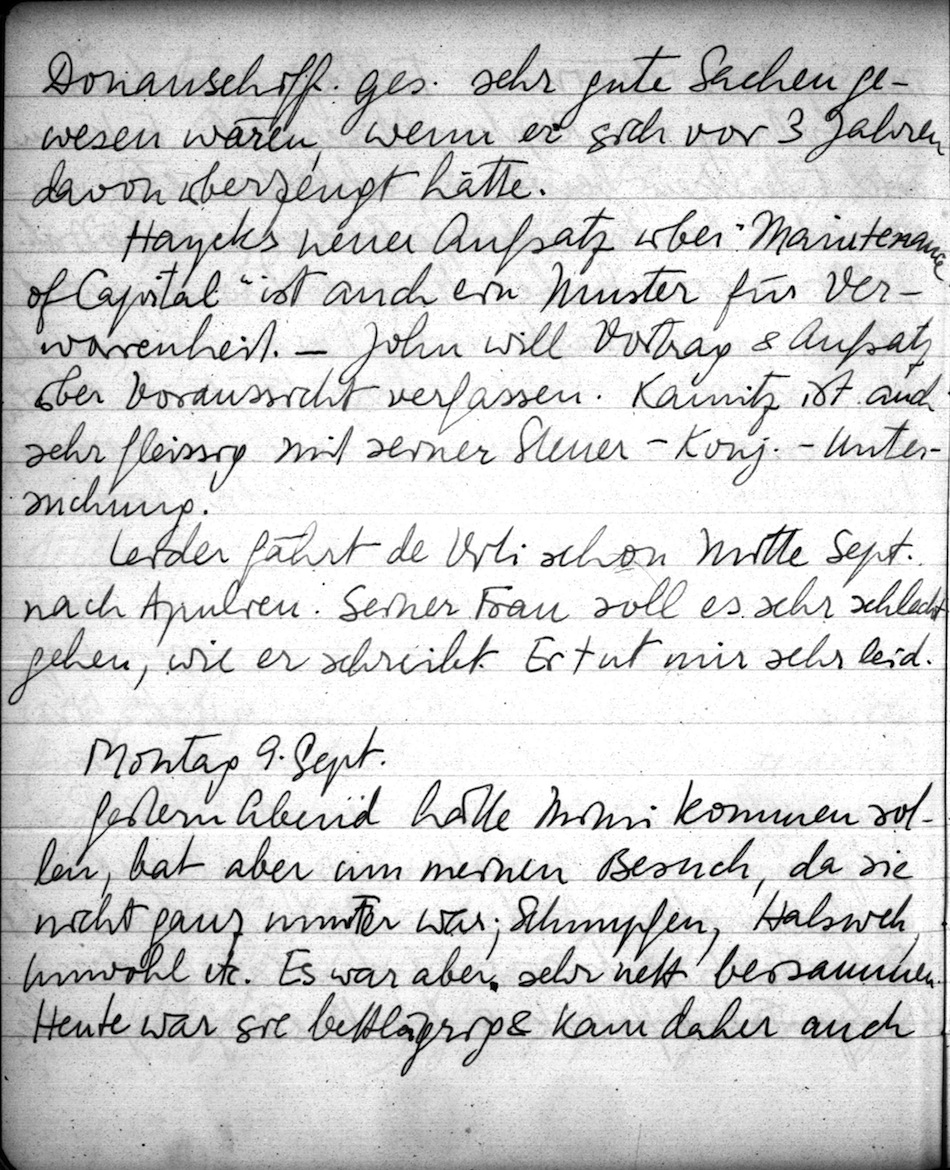 Donauschiff. ges. sehr gute Sachen ge-
wesen wären, wenn er sich vor 3 Jahren
davon überzeugt hätte.
Hayeks neuer Aufsatz über "Maintenance
of Capital" ist auch ein Muster für Ver-
worrenheit. — John will Vortrag & Aufsatz
über Voraussicht verfassen. Kamitz ist auch
sehr fleissig mit seiner Steuer - Konj. - Unter-
suchung.
Leider fährt de Viti schon Mitte Sept.
nach Apulien. Seiner Frau soll es sehr schlecht
gehen, wie er schreibt. Er tut mir sehr leid.
Montag 9. Sept.
Gestern Abend hätte Mimi kommen sol-
len, bat aber um meinen Besuch, da sie
nicht ganz munter war; Schnupfen, Halsweh,
unwohl etc. Es war aber sehr nett beisammen.
Heute war sie bettlägrig & kam daher auch